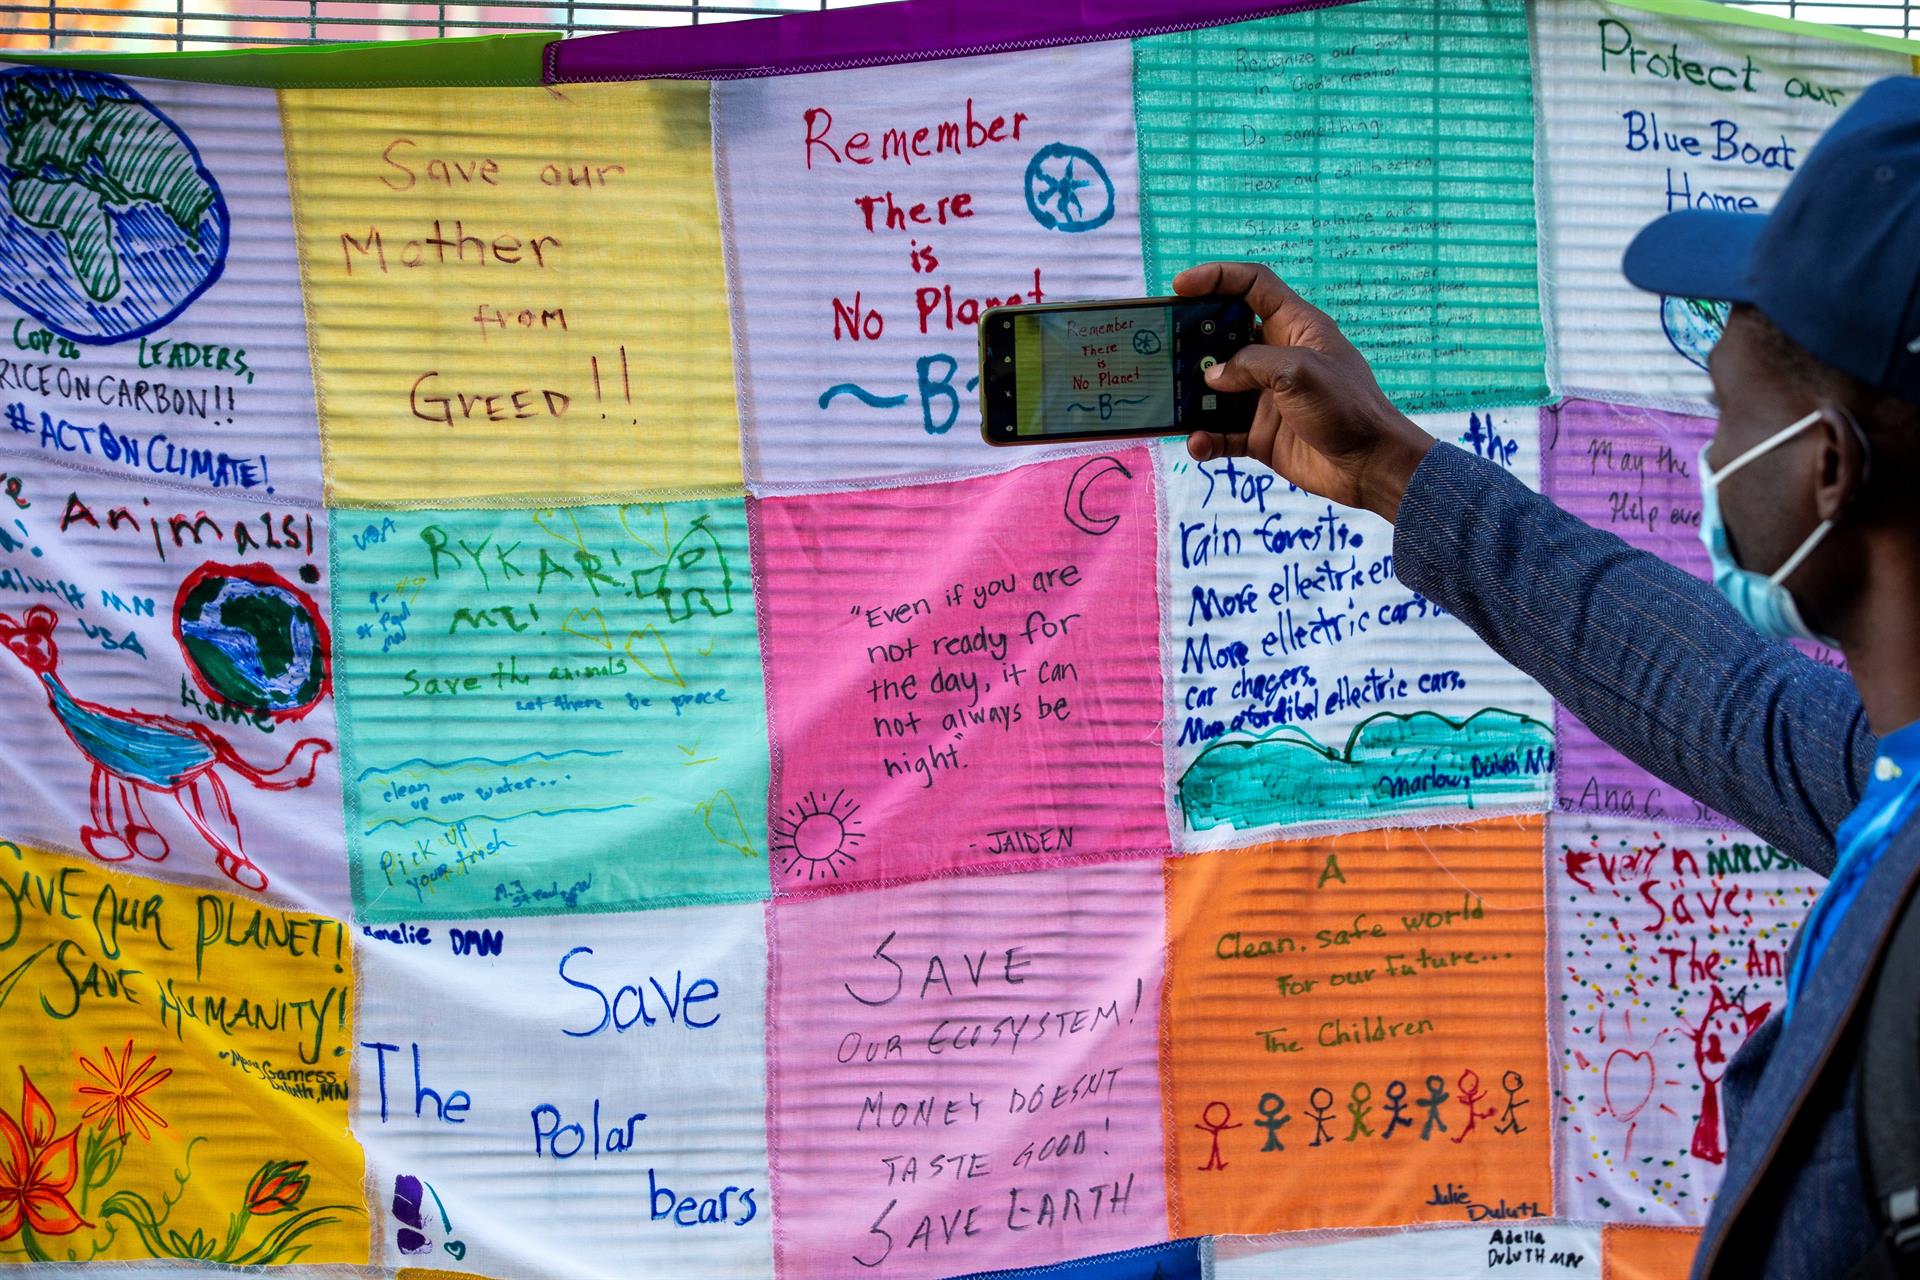 COP26 LEADERS,
RICE ON CARBON!!
#ACT ON CLIMATE!
Save our
Mother
from
GREED!!
Remember
There
is
No Planet
~B~
Recognize our part
in God's creation
Do something
Hear our call to action
Strike balance and
mandate us to sustainable
practices. Take a rest.
Protect our
Blue Boat
Home
Remember
There
is
No Planet
~B~
Animals!
MN
USA
Home
USA
RYKAR!
St Paul
MN
Save the animals
Let there be peace
clean
up our water...
Pick up
your trash
"Even if you are
not ready for
the day, it can
not always be
night."
- JAIDEN
"Stop the
rain forests.
More ellectric en
More ellectric cars
car chagers.
More affordibal ellectric cars.
Marlow, Duluth MN
May the
Help eve
Ana C
SAVE OUR PLANET!
SAVE HUMANITY!
Duluth, MN
Amelie DMN
Save
The
Polar
bears
SAVE
OUR ECOSYSTEM!
MONEY DOESNT
TASTE GOOD!
SAVE EARTH
A
Clean, safe world
For our future...
The Children
Julie
Duluth
Evelyn MN.USA
Save
The An
Adella
DULUTH MN